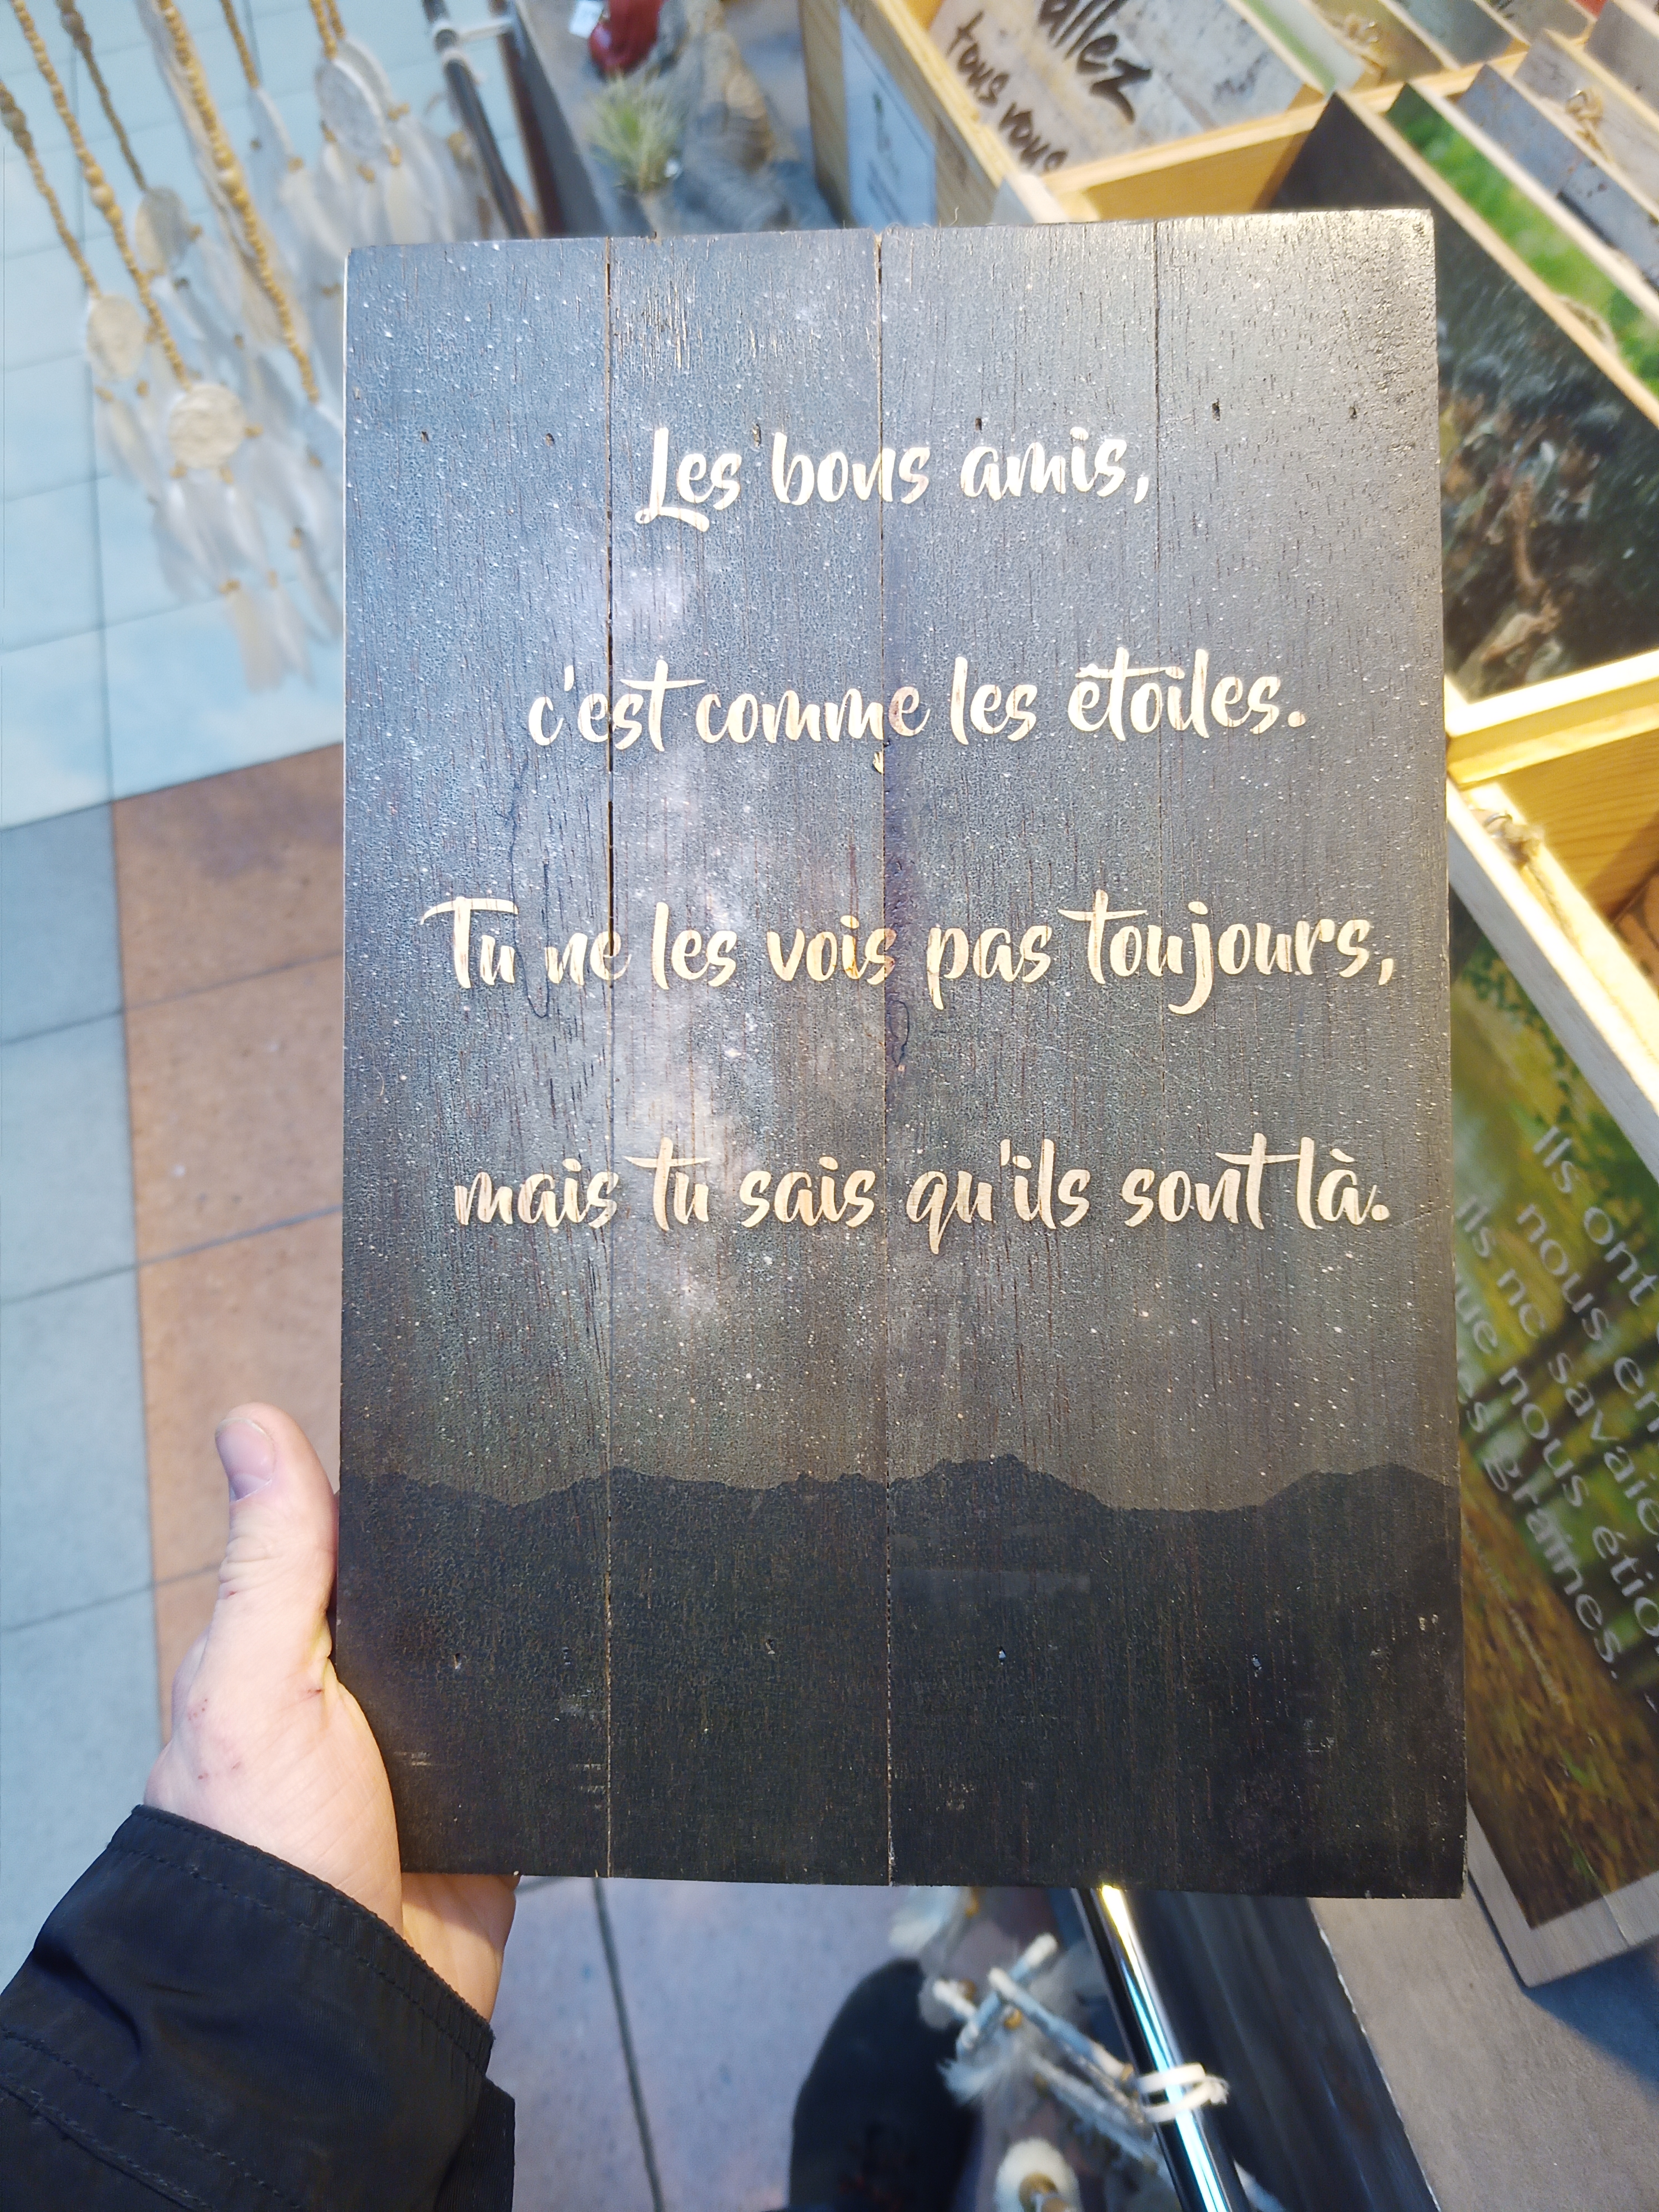 Les bons amis,
c'est comme les étoiles.
Tu ne les vois pas toujours,
mais tu sais qu'ils sont là.
allez
tous vous
Ils ont
nous
ils ne savaie
que nous étio
graines.